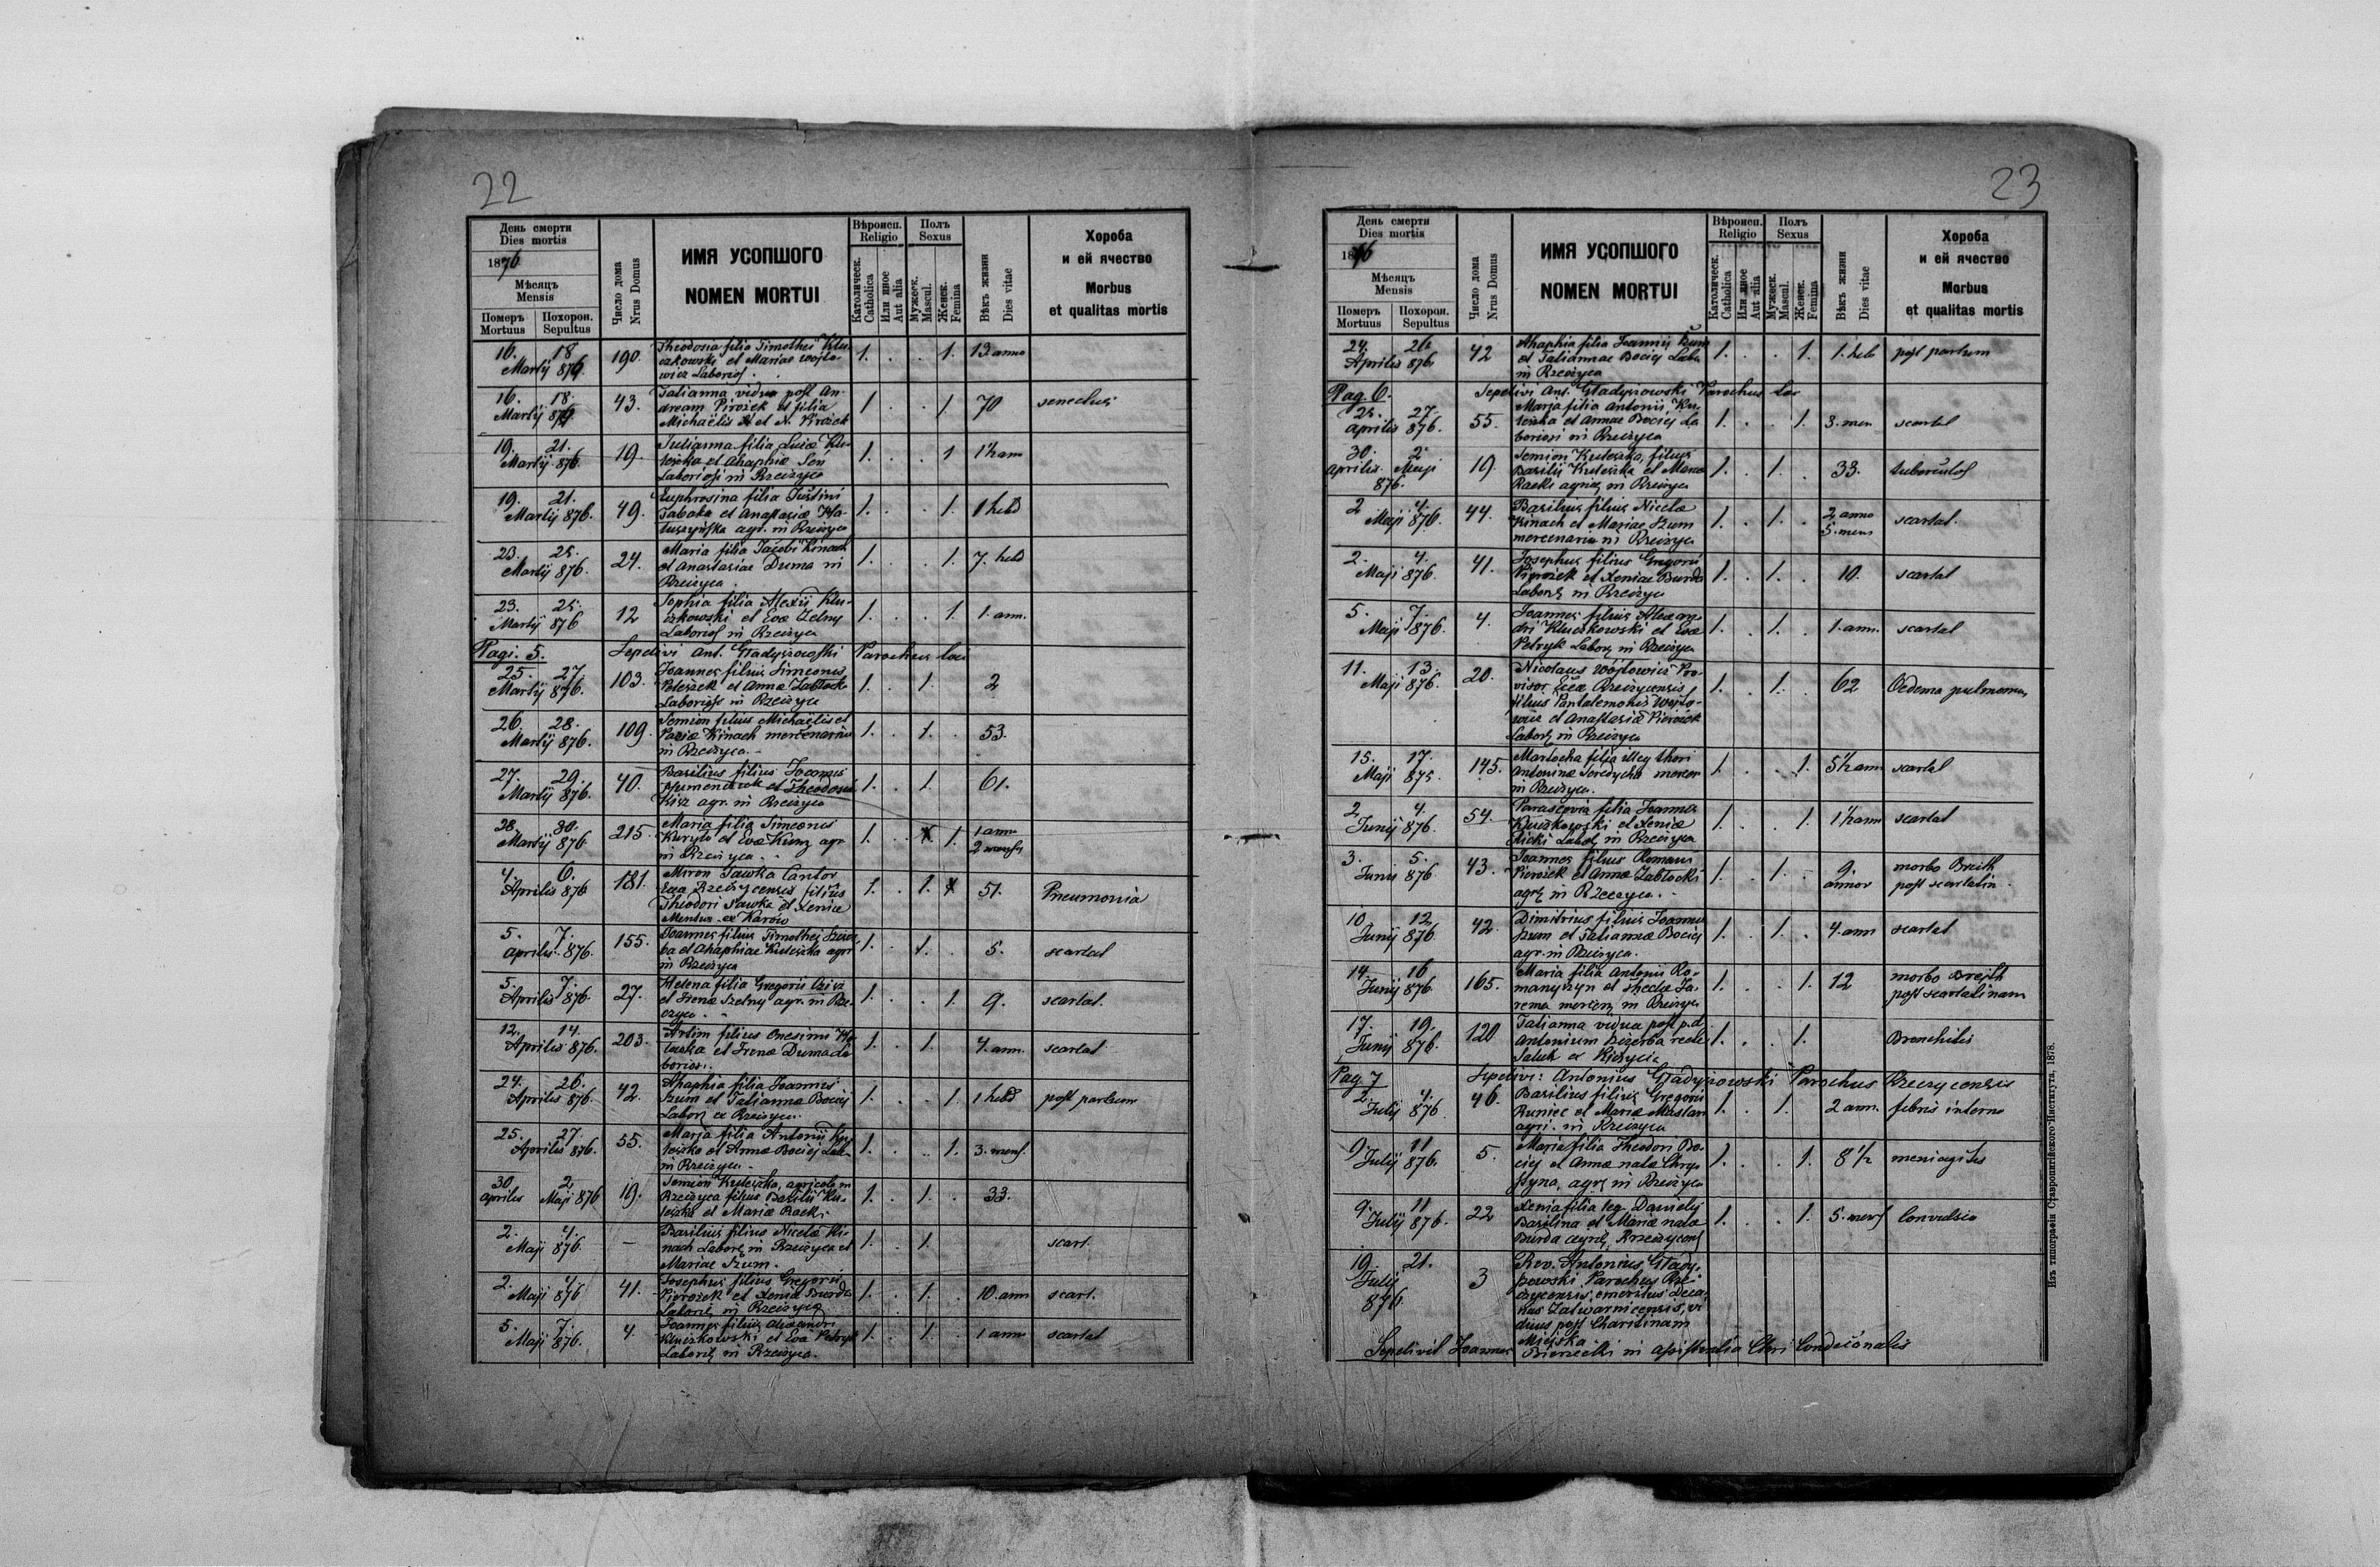 22
День смерти
Dies mortis
1876
Мѣсяцъ
Mensis
Померъ Похорон.
Mortuus Sepultus
Число дома
Nrus Domus
ИМЯ УСОПШОГО
NOMEN MORTUI
Вѣроисп.
Religio
Католическ.
Catholica
Или иное
Aut alia
Полъ
Sexus
Мужеск.
Mascul.
Женск.
Femina
Вѣкъ жизни
Dies vitae
Хороба
и ей ячество
Morbus
et qualitas mortis
16. 18 Martij 876. 190. Theodosia filia Timothei Klu-
czkowski et Mariae Wojto-
wicz Laborios. 1. . . 1. 13 anno
16. 18. Martij 876 43. Tatianna vidua post An-
dream Pirożek et filia
Michaëlis et N. Pirożek 1 . . 1 70 senectus
19. 21. Martij 876 19. Julianna filia Lucæ Ku-
leszka et Ahaphiæ Seń
Laboriosi in Rzeczyca 1. . . 1 1½ ann
19. 21. Martij 876. 49. Euphrosina filia Justini
Tabaka et Anastasiæ
agr. in Rzeczyca 1. . . 1. 1 hebd
23. 25. Martij 876. 24. Maria filia Jacobi Kinach
et Anastasiae Duma in
Rzeczyca. 1. . . 1. 7. hebd
23. 25. Martij 876 12 Sophia filia Alexii Klu-
czkowski et Evæ Zelny
Laborios in Rzeczyca 1. . . 1 1. ann.
Pagi. 5. Sepelivi Ant. Gładyszowski Parochus loci
25. 27. Martij 876. 103. Joannes filius Simeonis
et Annæ Zabłocki
Laborios in Rzeczyca 1. . 1. . 2
26. 28. Martij 876. 109. Semion filius Michaëlis et
Kinach mercenarius
in Rzeczyca. - 1. . 1. . 53.
27. 29. Martij 876. 40. Basilius filius Joannis
et Theodosiæ
Kisz agr. in Rzeczyca 1. . 1. 61.
28. 30. Martij 876. 215. Maria filia Simeonis
Kuryło et Evæ Kunz agr
in Rzeczyca. 1. . 1. 1 ann
2 menses
4. 6. Aprilis 876 181. Miron Sawka Cantor
Rzeczycensis filius
Theodori Sawka et Xeniæ
ex Karów 1. . 1. 51. Pneumonia
5. 7. Aprilis 876. 155. Joannes filius Timothei Szczer-
ba et Ahaphiae Kuleszka agr
in Rzeczyca 1. . 1. . 5. scarlat
5. 7. Aprilis 876. 27. Helena filia Gregorii
et Irenæ Szelny agr. in Rze-
czyca. 1. . . 1. 9. scarlat.
12. 14. Aprilis 876. 203. Artim filius Onesimi
et Irenæ Duma La-
boriosi. 1. . 1. 4. ann. scarlat
24. 26. Aprilis 876. 42. Ahaphia filia Joannis
Szum et Tatiannæ Bociej
Labor ex Rzeczyca. 1. . . 1 1 hebd post partum
25. 27. Aprilis 876. 55. Marja filia Antonii Ku-
leszka et Annæ Bociej Lab
in Rzeczyca - 1. . . 1. 3. mens.
30 Aprilis 2 Maji 876 19. Semion Kuleszka, agricola in
Rzeczyca filius Basilii Ku-
leszka et Mariæ Backi. 1. . 1. . 33.
2. 4. Maji 876. - Basilius filius Nicolæ Ki-
nach Labor in Rzeczyca et
Mariae Szum. 1. . 1. scarl.
2. 4. Maji 876 41. Josephus filius Gregorii
Pierożek et Xeniæ Burda
Labor in Rzeczyca 1. . 1. . 10. ann scarl.
5. 7. Maji 876. 4. Joannes filius Alexandri
Kluczkowski et Evæ Petryk
Labor in Rzeczyca. 1. . 1 . 1 ann scarlat
23
День смерти
Dies mortis
1876
Мѣсяцъ
Mensis
Померъ Похорон.
Mortuus Sepultus
Число дома
Nrus Domus
ИМЯ УСОПШОГО
NOMEN MORTUI
Вѣроисп.
Religio
Католическ.
Catholica
Или иное
Aut alia
Полъ
Sexus
Мужеск.
Mascul.
Женск.
Femina
Вѣкъ жизни
Dies vitae
Хороба
и ей ячество
Morbus
et qualitas mortis
24. 26 Aprilis 876. 42 Ahaphia filia Joannis Szum
et Tatiannae Bociej Labo
in Rzeczyca 1. . . 1. 1. heb post partum
Pag 6. Sepelivi Ant. Gładyszowski Parochus loc
25. 27. Aprilis 876. 55. Marja filia Antonii Ku-
leszka et Annae Bociej La
boriosi in Rzeczyca 1. . . 1. 3. men scarlat
30. Aprilis 2. Maji 876. 19. Semion Kuleszka, filius
Basilii Kuleszka et Mariæ
Backi agric in Rzeczyca 1. . 1. . 33. tuberculos
2 4. Maji 876. 44. Basilius filius Nicolæ
Kinach et Mariae Szum
mercenaria in Rzeczyca 1. . 1. . 2 anno
5. mens scarlat.
2. 4. Maji 876. 41. Josephus filius Gregorii
Pirożek et Xeniae Burda
Labor in Rzeczyca 1. . 1. . 10. scarlat
5. 7. Maji 876. 4. Joannes filius Alexan-
dri Kluczkowski et Evæ
Petryk Labor in Rzeczyca 1. . 1. . 1. ann. scarlat
11. 13. Maji 876. 20. Nicolaus Wójtowicz Pro-
visor Rzeczycensis
filius Pantalemonis Wojto-
wicz et Anastasiæ Pierożek
Labor in Rzeczyca 1. . 1. . 62 Oedema pulmonum
15. 17. Maji 875. 145. Martocha filia illeg thori
Antoninæ Seredycha mercen
in Rzeczyca. 1. . . 1. 5½ ann scarlat
2 4. Junij 876. 54. Parascevia filia Joannis
Kluczkowski et Xeniæ
Labor in Rzeczyca 1. . . 1. 1½ ann scarlat
3. 5. Junij 876 43. Joannes filius Romani
Pierożek et Annæ Zabłocki
agr in Rzeczyca. - 1. . 1. - 9.
annor morbo Breith
post scarlatin.
10 12 Junij 876. 42. Dimitrius filius Joannis
Szum et Tatiannæ Bociej
agr. in Rzeczyca. 1. . 1. . 4. ann scarlat
14. 16 Junij 876 165. Maria filia Antonii Ro-
manyszyn et Theclæ Ja-
rema mercen in Rzeczyca 1. . . 1. 12 morbo Brejth
post scarlatinam
17. 19. Junij 876. 120 Tatianna vidua post p.d.
Antonium Szczerba
ex 1. . . 1. Bronchitis
Pag 7 Sepelivi: Antonius Gładyszowski Parochus Rzeczycensis
2. 4. Julij 876 46. Basilius filius Gregorii
Runiec et Mariæ Maslan
agri. in Rzeczyca 1. . 1. 2 ann. febris interna
9 11 Julij 876. 5. Maria filia Theodori Bo-
ciej et Annæ natæ Chry-
styna, agr in Rzeczyca 1. . . 1. 8½ meningitis
9. 11 Julij 876. 22 Xenia filia leg. Danielij
Basilina et Mariæ natæ
Burda agr Rzeczycens 1. . . 1. 5. mens Convulsio
19 21. Julij 876 3 Rev. Antonius Glady-
szowski Parochus Rze-
czycensis, emeritus Deca-
nus Zatwarnicensis, vi
duus post Charitinam
Miejska
Sepelivit Joannes Bierzecki in assistentia Cleri Condecanalis
Изъ типографіи Ставропигійского Института, 1878.